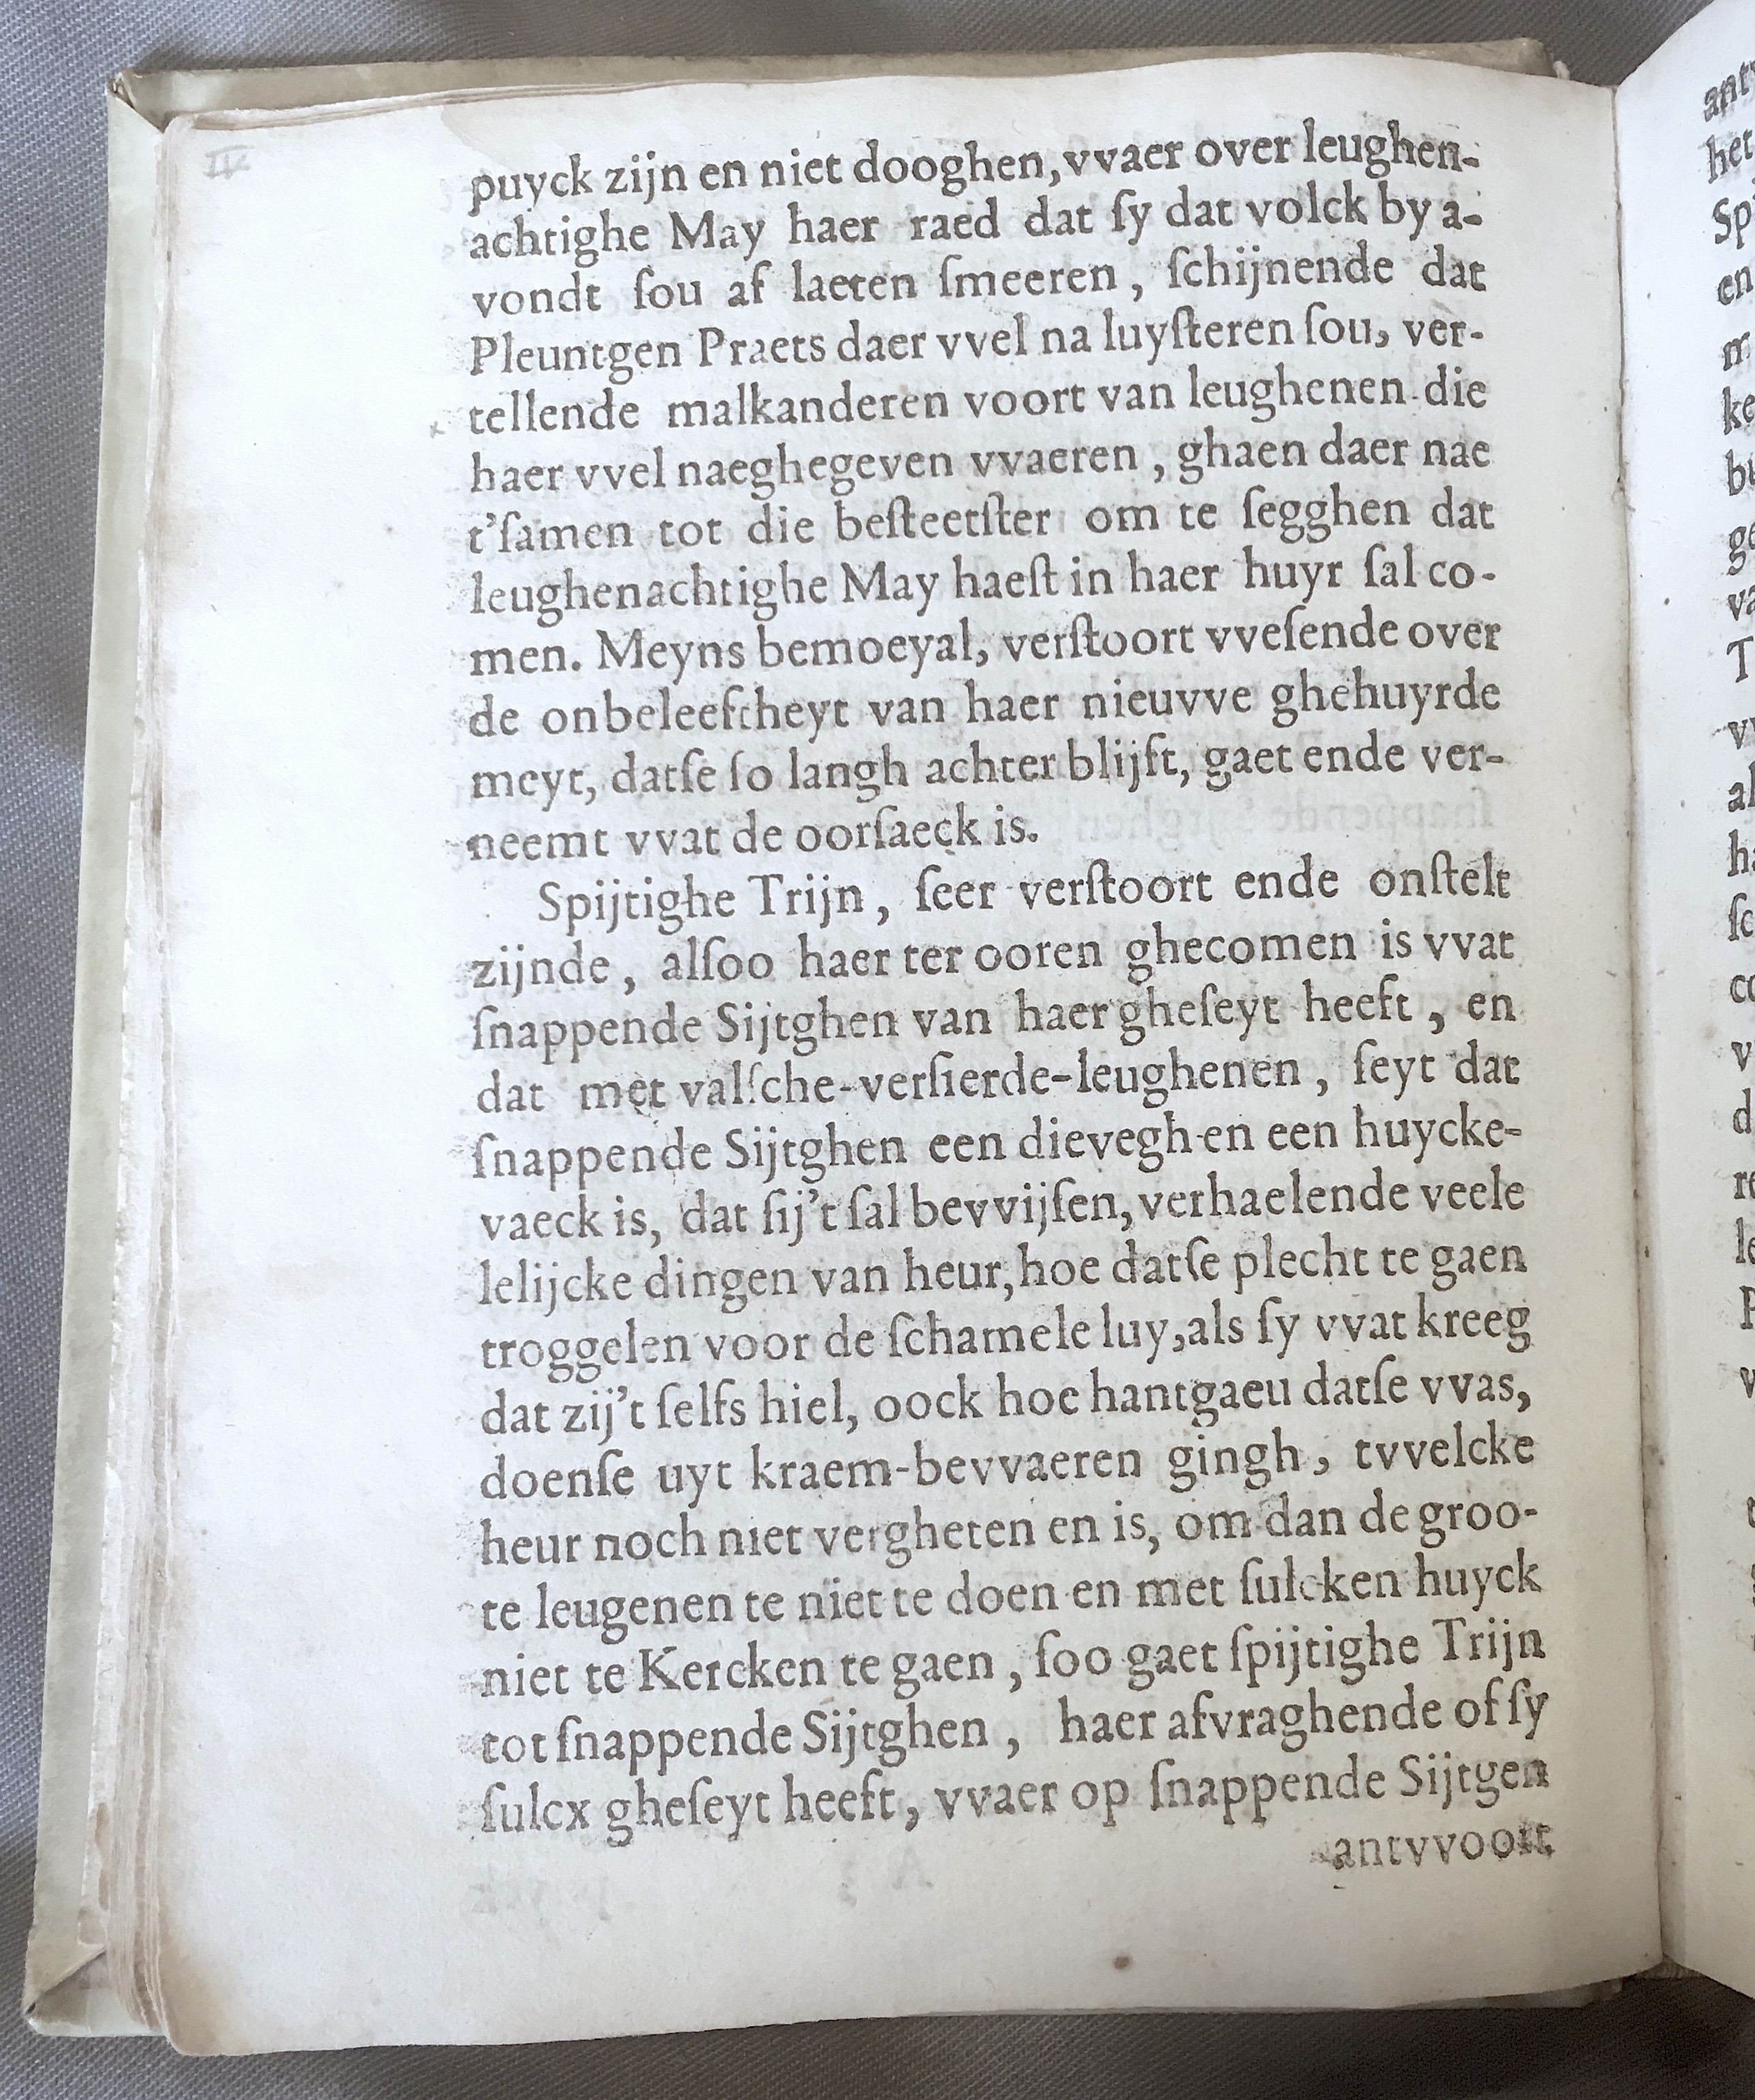 puyck zijn en niet dooghen, vvaer over leughen-
achtighe May haer raed dat ſy dat volck by a-
vondt ſou af laeten ſmeeren, ſchijnende dat
Pleuntgen Praets daer vvel na luyſteren ſou, ver-
tellende malkanderen voort van leughenen die
haer vvel naeghegeven vvaeren, ghaen daer nae
t'ſamen tot die beſteetſter om te ſegghen dat
leughenachtighe May haeſt in haer huyr ſal co-
men. Meyns bemoeyal, verſtoort vveſende over
de onbeleeftheyt van haer nieuvve ghehuyrde
meyt, datſe ſo langh achter blijft, gaet ende ver-
neemt vvat de oorſaeck is.
Spijtighe Trijn, ſeer verſtoort ende onſtelt
zijnde, alſoo haer ter ooren ghecomen is vvat
ſnappende Sijtghen van haer gheſeyt heeft, en
dat met valſche-verſierde-leughenen, ſeyt dat
ſnappende Sijtghen een dievegh en een huycke-
vaeck is, dat ſij't ſal bevvijſen, verhaelende veele
lelijcke dingen van heur, hoe datſe plecht te gaen
troggelen voor de ſchamele luy, als ſy vvat kreeg
dat zij't ſelfs hiel, oock hoe hantgaeu datſe vvas,
doenſe uyt kraem-bevvaeren gingh, tvvelcke
heur noch niet vergheten en is, om dan de groo-
te leugenen te niet te doen en met ſulcken huyck
niet te Kercken te gaen, ſoo gaet ſpijtighe Trijn
tot ſnappende Sijtghen, haer afvraghende of ſy
ſulcx gheſeyt heeft, vvaer op ſnappende Sijtgen
antvvoort
het
en